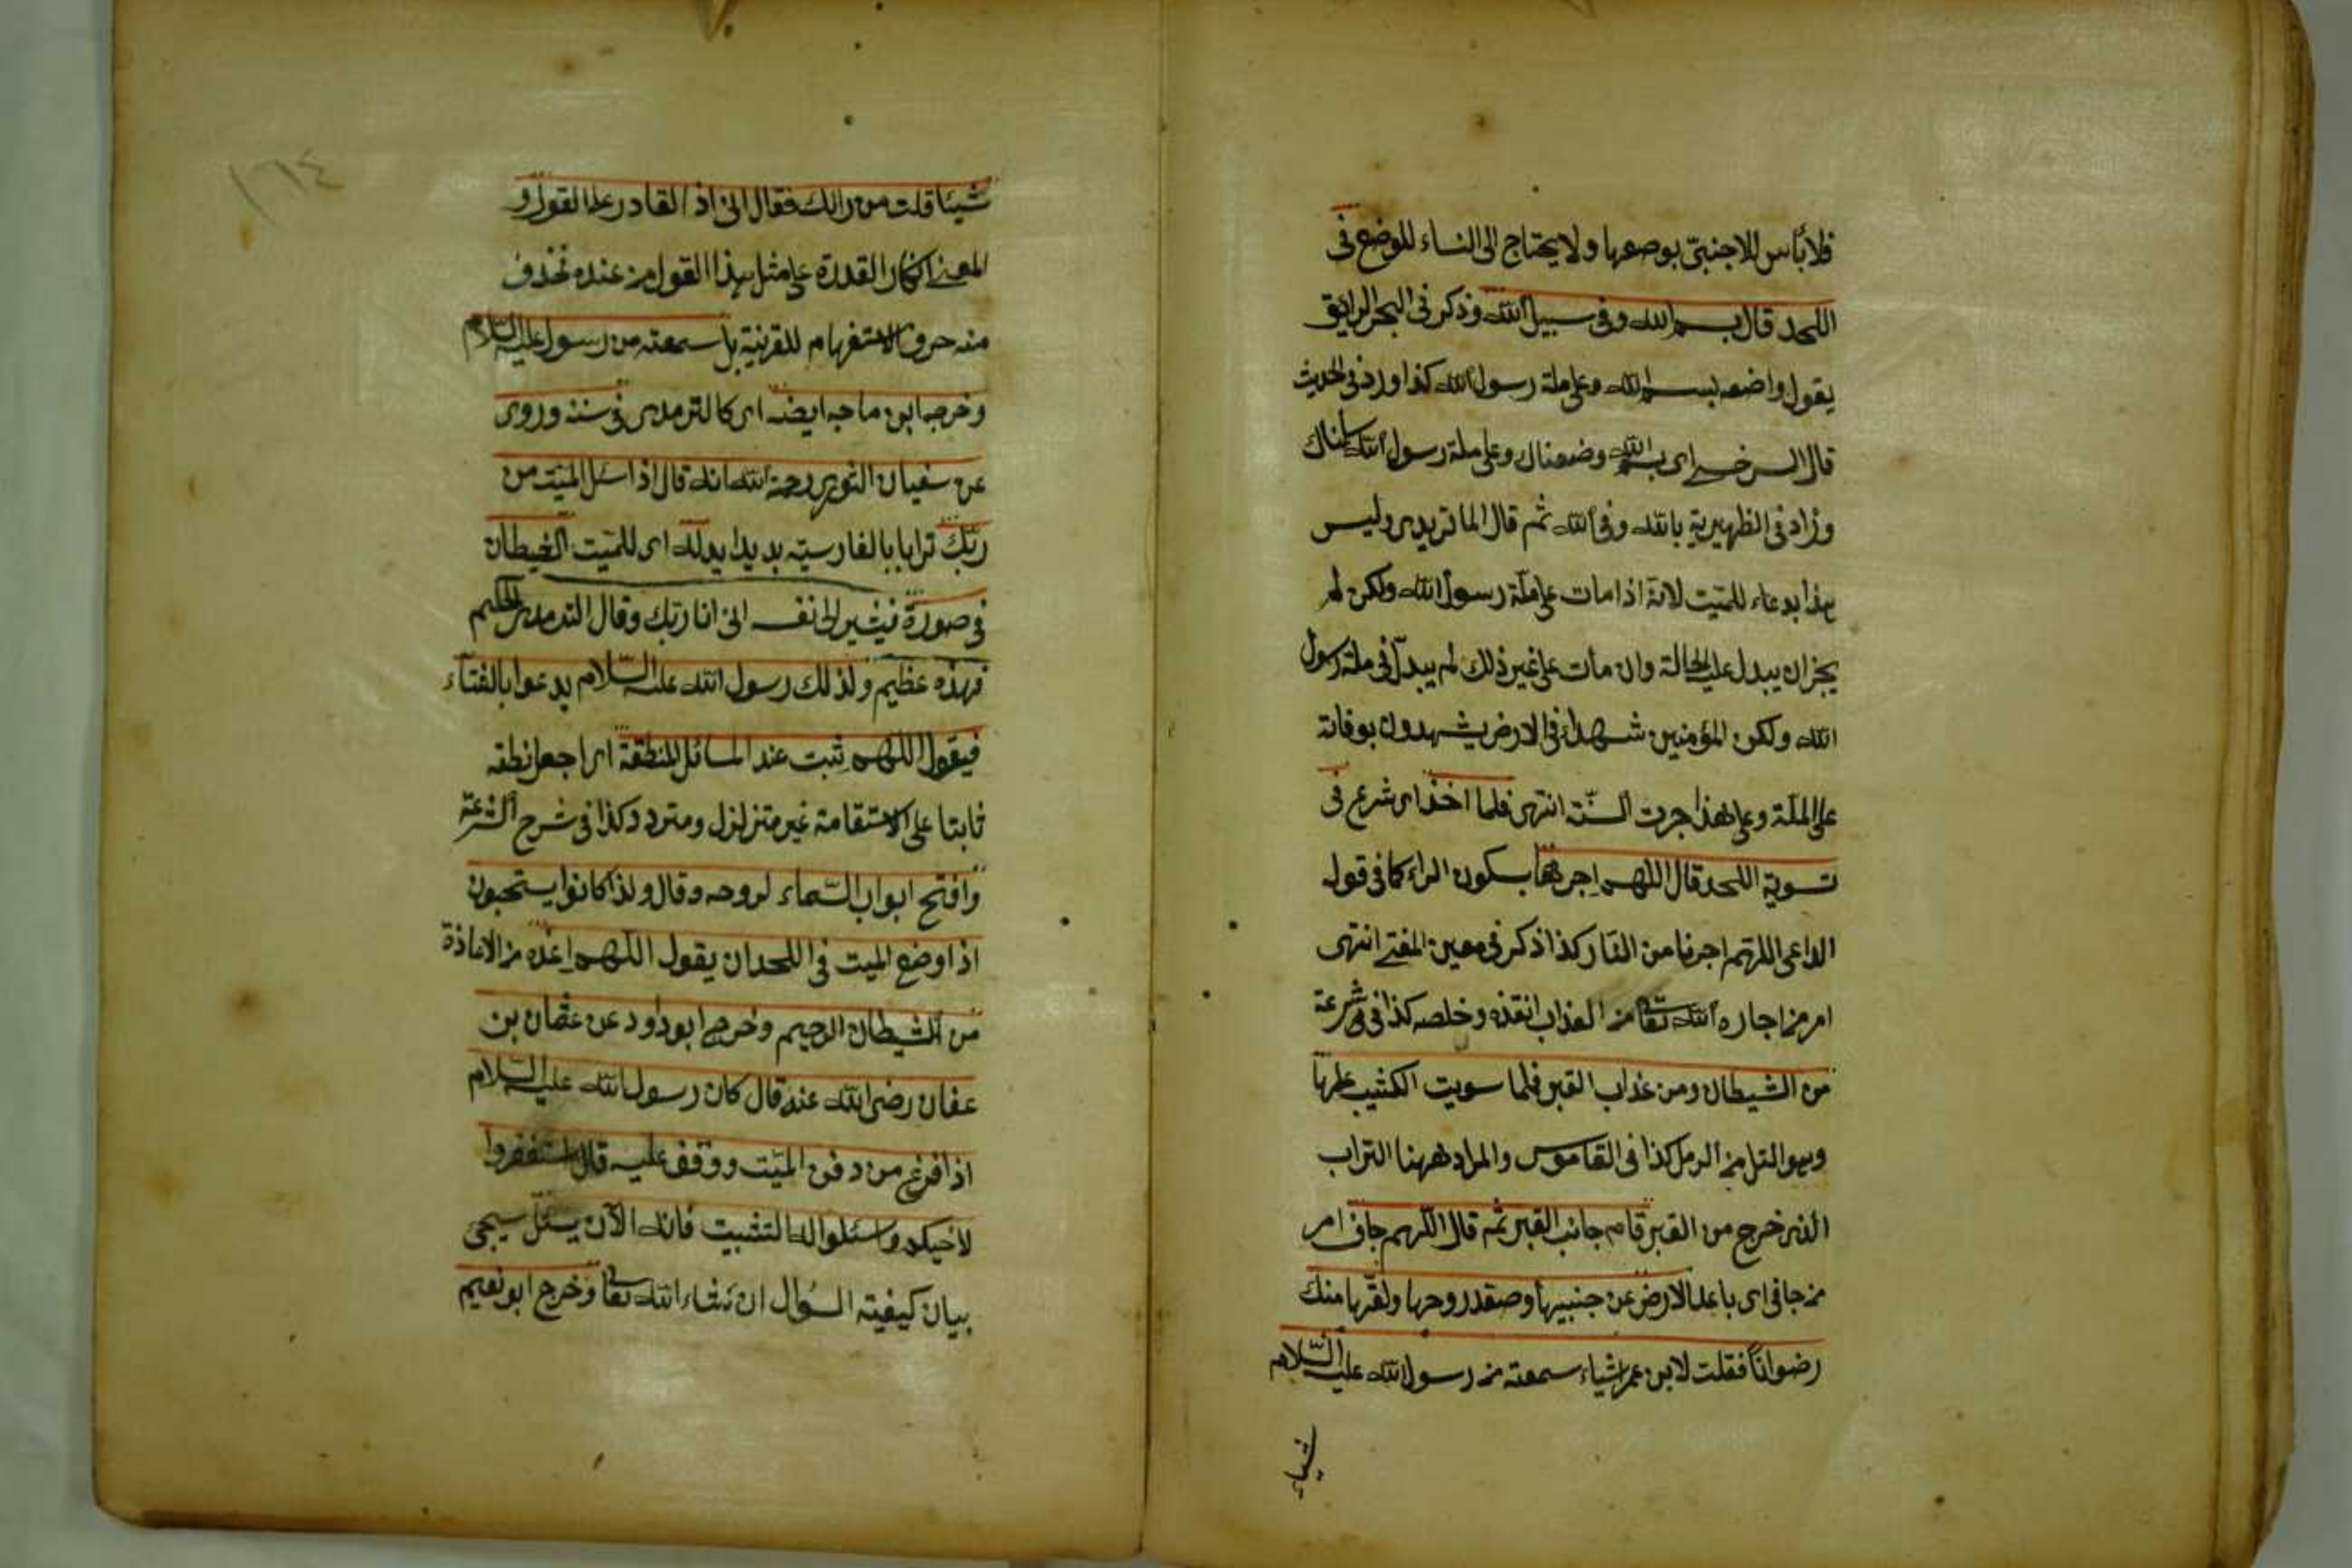 فلا بأس للاجنبىّ بوضعها ولا يحتاج الى النساء للوضع فى
اللحد قال بسم الله وفى سبيل الله وذكر فى البحر الرايق
يقول واضعه بسم الله وعلى ملة رسول الله كذا ورد فى الحديث
قال السرخسى اى بسم الله وضعناك وعلى ملة رسول الله سلمناك
وزاد فى الظهيرية بالله وفى الله ثم قال الماتريدى وليس
هذا بدعاء للميّت لانه اذا مات على ملّة رسول الله ولكن لم
يجز ان يبدل عليه الحالة وان مات على غير ذلك لم يبدل فى ملة رسول
الله ولكن المؤمنين شهداء فى الارض يشهدون بوفاته
على الملّة وعلى هذا جرت السنّة انتهى فلما اخذ اى شرع فى
تسوية اللحد قال اللهم اجرها بسكون الراء كما فى قول
الداعى اللهم اجرنا من النار كذا ذكر فى معين المفتى انتهى
امر من اجاره الله تعا من العذاب انقذه وخلصه كذا فى شرعة
من الشيطان ومن عذاب القبر فلما سويت الكثيب عليها
وهو التل من الرمل كذا فى القاموس والمراد ههنا التراب
الذى خرج من القبر قام جانب القبر ثم قال اللهم جاف امر
من جافى اى باعد الارض عن جنبيها وصعّد روحها ولقّها منك
رضوانًا فقلت لابن عمر اشياء سمعته من رسول الله عليه السّلام
شيئا
١٦٤
شيئا قلت من رائك فقال انى اذا لقادر على القول و
المعنى انكار القدرة على مثل هذا القول من عنده فحذف
منه حرف الاستفهام للقرينة بل سمعته من رسول عليه السّلام
وخرجه ابن ماجه ايضه اى كالترمدى فى سننه وروى
عن سفيان الثورى رحمة الله انه قال اذا سئل الميّت من
ربّك ترايا بالفارسيه بديدا يد له اى للميّت الشيطان
فى صورة فيشير الى نفسه انى انا ربك وقال الترمدى الحكيم
فهذه عظيم ولذلك رسول الله عليه السّلام يدعوا بالفتاء
فيقول اللهم ثبت عند المسائل المنطقة اى اجعل نطقه
ثابتا على الاستقامة غير متزلزل ومتردد كذا فى شرح الشرعة
وافتح ابواب السّماء لروحه وقال ولذا كانوا يستحبون
اذا وضع الميت فى اللحد ان يقول اللهم اعذه من الاعاذة
من الشيطان الرجيم وخرج ابو داود عن عثمان بن
عفان رضى الله عنه قال كان رسول الله عليه السّلام
اذا فرغ من دفن الميّت ووقف عليه قال استغفروا
لاخيكم واسئلوا الله التثبيت فانه الآن يسئل سيجئ
بيان كيفيته السؤال ان شاء الله تعا وخرج ابو نعيم